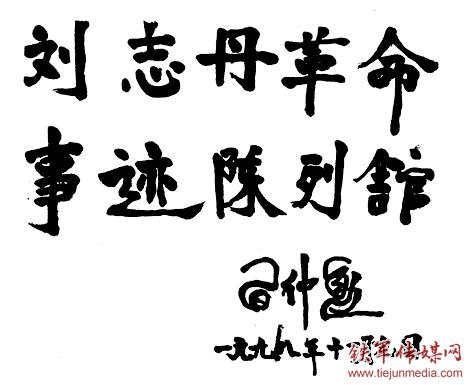 刘志丹革命
事迹陳列舘
習仲勳
一九九九年十月日
铁军传媒网
www.tiejunmedia.com